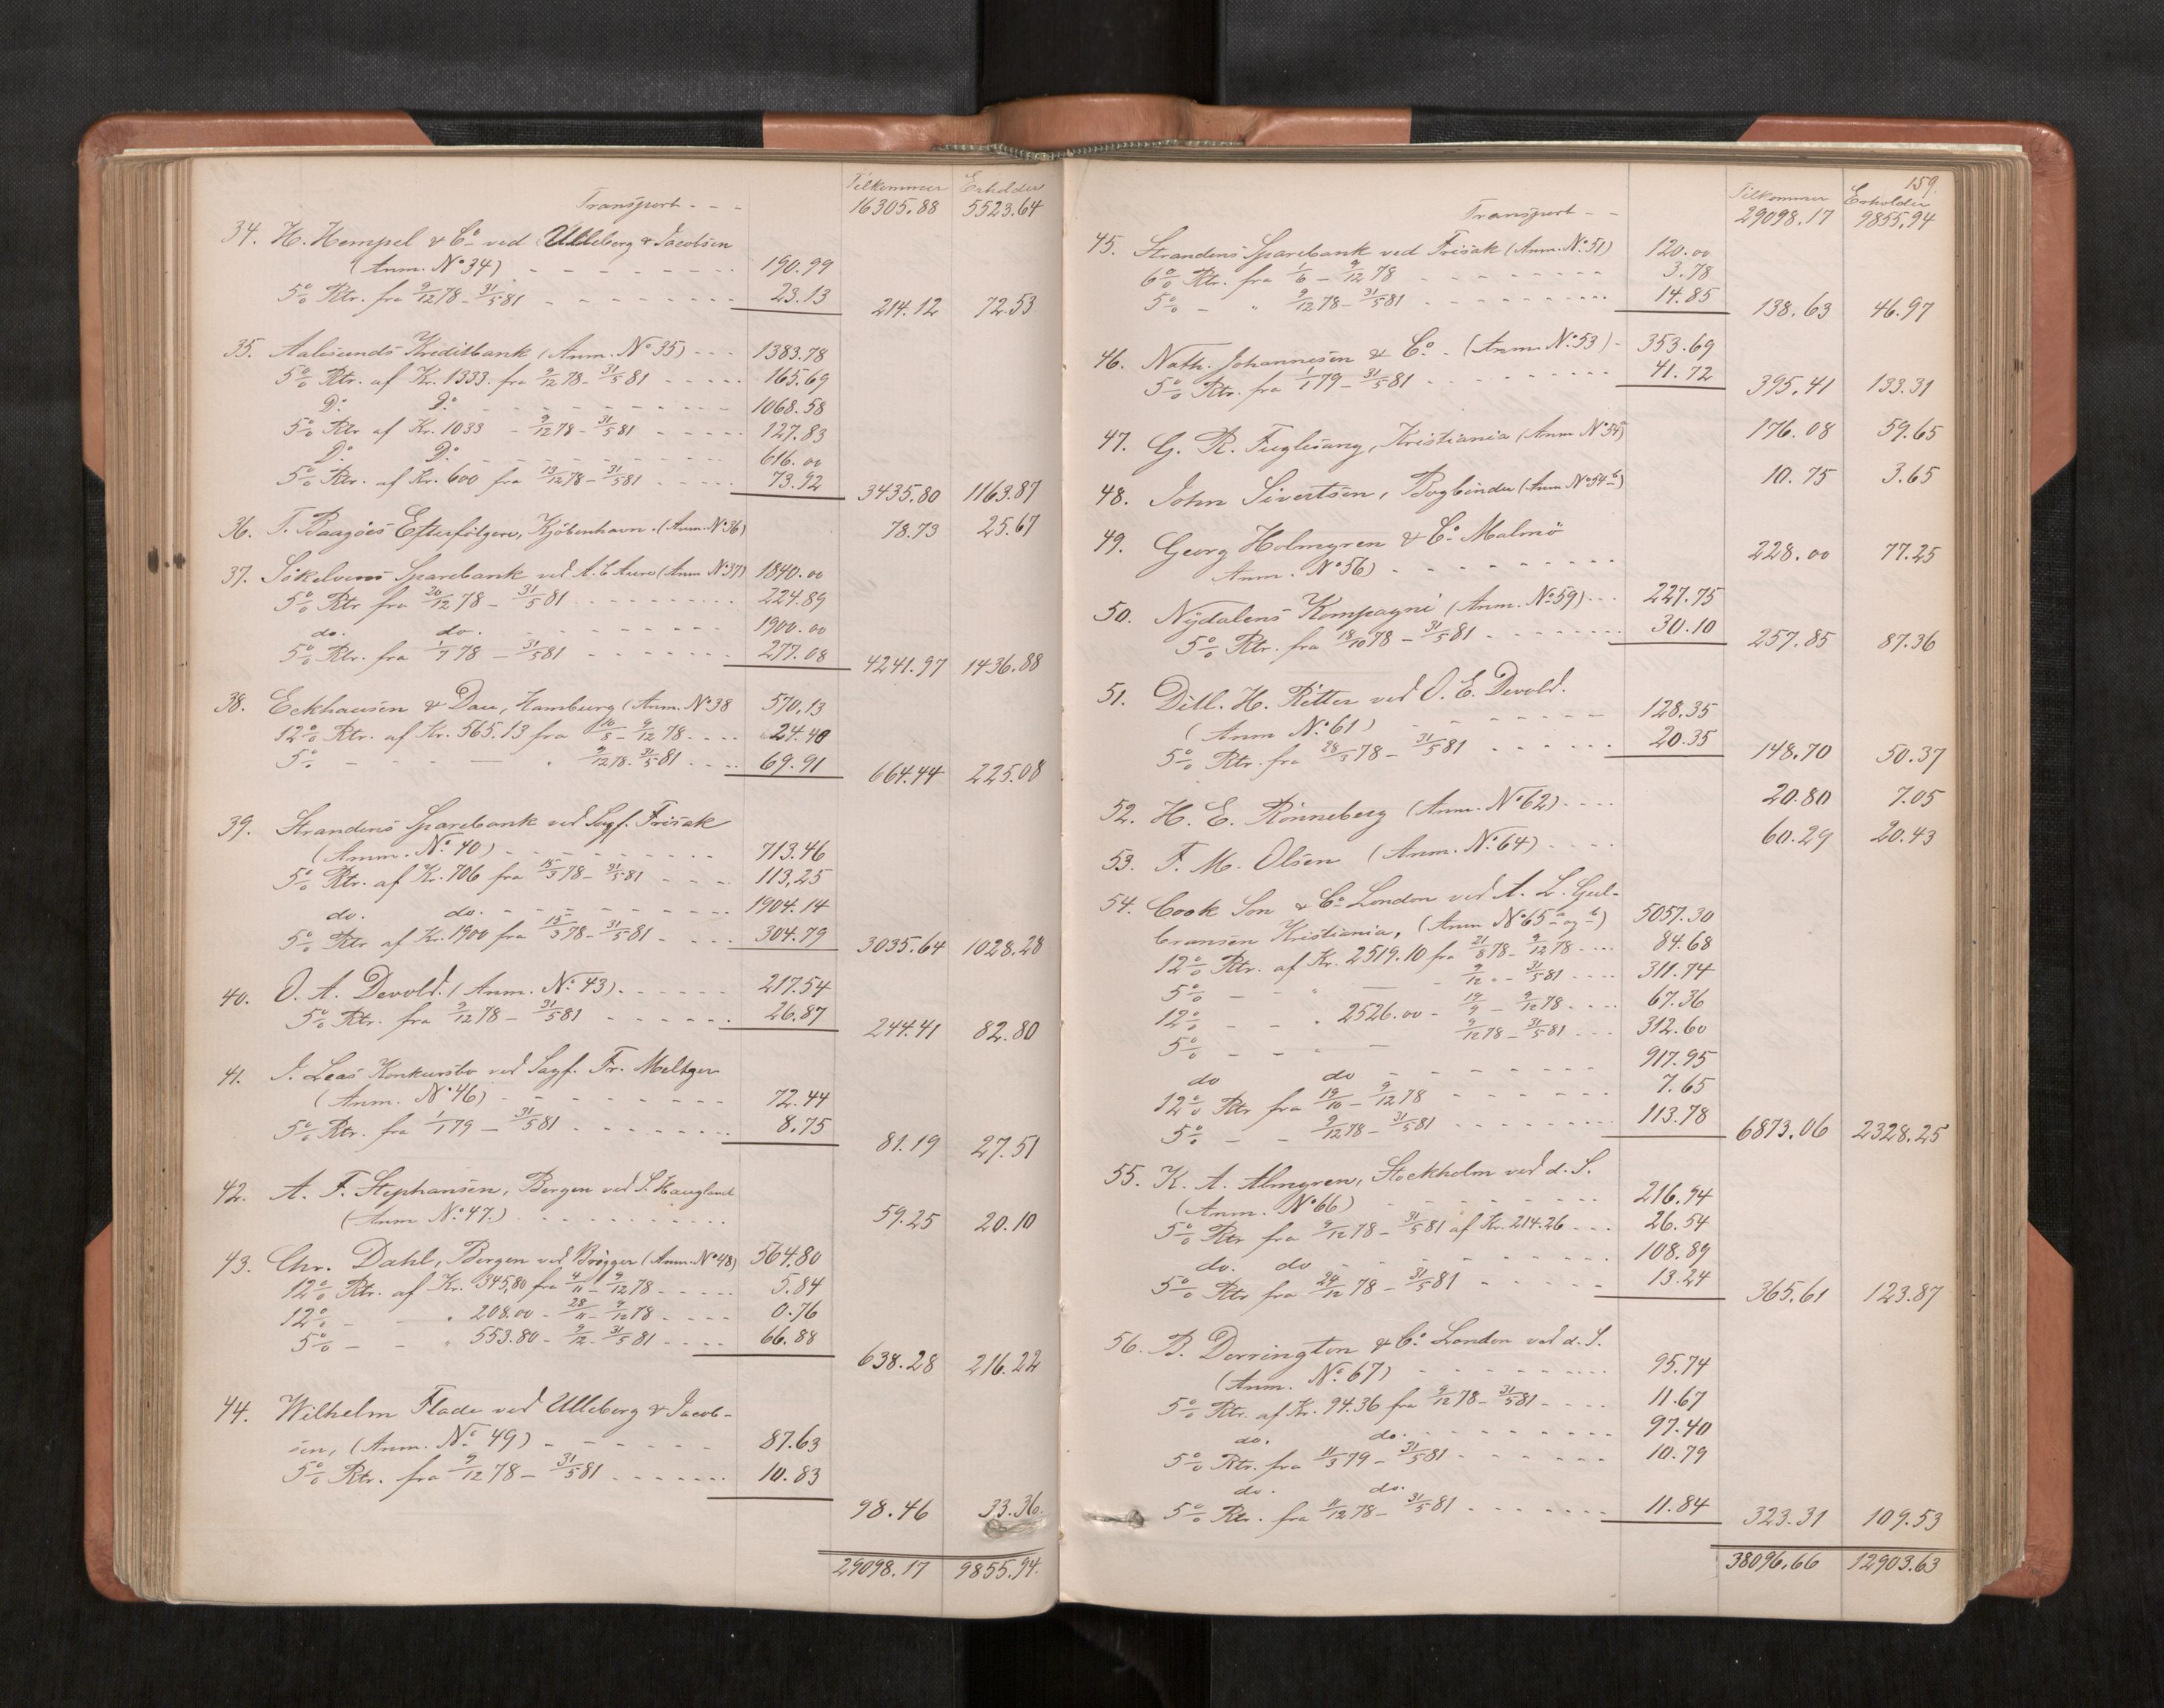 Tilkommer Erholder
Transport - - - 16305.88 5523.64
34. H. Hempel & Co ved Ulleberg & Jacobsen
(Anm. No 34) - - - 190.99
5% Rtr. fra 9/12 78 - 31/5 81 - - - 23.13 214.12 72.53
35. Aalesunds Kreditbank (Anm. No 35) - - - 1383.78
5% Rtr. af Kr. 1333. fra 9/12 78 - 31/5 81 - - - 165.69
Do. Do. - - - 1068.58
5% Rtr af Kr. 1033 - 9/12 78 - 31/5 81 - - - 127.83
Do. Do. - - - 616.00
5% Rtr. af Kr. 600 fra 13/12 78 - 31/5 81 - - - 73.92 3435.80 1163.87
36. T. Baagöes Efterfölgere, Kjöbenhavn. (Anm. No 36) 78.73 25.67
37. Sökelvens Sparebank ved A. C Aure (Anm No 37) 1840.00
5% Rtr fra 20/12 78 - 31/5 81 - - - 224.89
do. do. - - - 1900.00
5% Rtr. fra 1/7 78 - 31/5 81 - - - 277.08 4241.97 1436.88
38. Eckhausen & Dau, Hamburg (Anm. No 38 570.13
12% Rtr. af Kr. 565.13 fra 10/5 - 9/12 78 - - - 24.40
5% - - - 9/12 78 - 31/5 81 - - - 69.91 664.44 225.08
39. Strandens Sparebank ved Sagf. Frisak
(Anm. No. 40) - - - 713.46
5% Rtr. af Kr. 706 fra 15/3 78 - 31/5 81 - - - 113,25
do. do. - - - 1904.14
5% Rtr af Kr. 1900 fra 15/3 78 - 31/5 81 - - - 304.79 3035.64 1028.28
40. O. A. Devold. (Anm. No. 43) - - - 217.54
5% Rtr. fra 9/12 78 - 31/5 81 - - - 26.87 244.41 82.80
41. J. Leas Konkursbo ved Sagf. Fr. Meltzer
(Anm. No 46) - - - 72.44
5% Rtr. fra 1/1 79 - 31/5 81 - - - 8.75 81.19 27.51
42. A. F. Stephansen, Bergen ved S. Haugland
(Anm No. 47.) - - - 59.25 20.10
43. Chr. Dahl, Bergen ved Brögger (Anm. No 48) 564.80
12% Rtr. af Kr. 345,80 fra 4/11 - 9/12 78 - - - 5.84
12% - - " 208.00 - 28/11 - 9/12 78 - - - 0.76
5% - - " 553.80 - 9/12 - 31/5 81 - - - 66.88 638.28 216.22
44. Wilhelm Flade ved Ulleberg & Jacob-
sen, (Anm. No. 49) - - - 87.63
5% Rtr. fra 9/12 78 - 31/5 81 - - - 10.83
98.46 33.36.
29098.17 9855.94.
159.
Tilkommer Erholder
Transport - - 29098.17 9855,94
45. Strandens Sparebank ved Frisak (Anm. No. 51) 120.00
6% Rtr. fra 1/6 - 9/12 78 - - - 3.78
5% - " 9/12 78 - 31/5 81 - - - 14.85 138.63 46.97
46. Nath. Johannesen & Co. (Anm. No. 53) - 353.69
5% Rtr. fra 1/1 79 - 31/5 81 - - - 41.72 395.41 133.31
47. G. R. Fuglesang, Kristiania (Anm No 54a) 176.08 59.65
48. John Sivertsen, Bogbinder (Anm No 54b) 10.75 3.65
49. Georg Holmgren & Co. Malmö
Anm. No 56) - - - 228.00 77.25
50. Nydalens Kompagni (Anm. No 59) - - - 227.75
5% Rtr. fra 18/10 78 - 31/5 81 - - - 30.10 257.85 87.36
51. Ditl. H. Ritter ved O. E. Devold.
(Anm No. 61) - - - 128.35
5% Rtr. fra 28/3 78 - 31/5 81 - - - 20.35 148.70 50.37
52. H. E. Rönneberg (Anm. No 62) - - - 20.80 7.05
53. F. M. Olsen (Anm. No. 64) - - - 60.29 20.43
54. Cook Son & Co London ved A. L. Gul-
bransen Kristiania, (Anm No 65a og b) 5057.30
12% Rtr. af Kr. 2519.10 fra 21/8 78 - 9/12 78 - - - 84.68
5% - - " - 9/12 " - 31/5 81 - - - 311.74
12% - - " 2526.00 - 19/9 - 9/12 78 - - - 67.36
5% - - " - 9/12 78 - 31/5 81 - - - 312.60
do do - - - 917.95
12% Rtr fra 19/10 - 9/12 78 - - - 7.65
5% - - 9/12 78 - 31/5 81 - - - 113.78 6873.06 2328.25
55. K. A. Almgren, Stockholm ved d. S.
(Anm. No 66) - - - 216.94
5% Rtr fra 9/12 78 - 31/5 81 af Kr. 214.26 - - - 26.54
do. do - - - 108.89
5% Rtr fra 24/12 78 - 31/5 81 - - - 13.24 365.61 123.87
56. B. Dorrington & Co. London ved d. S.
(Anm. No. 67) - - - 95.74
5% Rtr. af Kr. 94.36 fra 9/12 78 - 31/5 81 - - - 11.67
do. do. - - - 97.40
5% Rtr. fra 11/3 79 - 31/5 81 - - - 10.79
do. do.
5% Rtr. fra 11/12 78 - 31/5 81 - - - 11.84 323.31 109.53
38096.66 12903.63